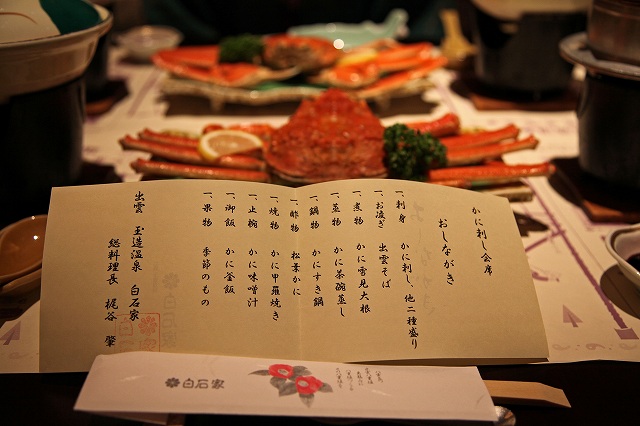 かに刺し会席
おしながき
一、刺身 かに刺し、他二種盛り
一、お凌ぎ 出雲そば
一、煮物 かに雪見大根
一、蒸物 かに茶碗蒸し
一、鍋物 かにすき鍋
一、酢物 松葉かに
一、焼物 かに甲羅焼き
一、止椀 かに味噌汁
一、御飯 かに釜飯
一、果物 季節のもの
出雲 玉造温泉 白石家
総料理長 梶谷 肇
白石家